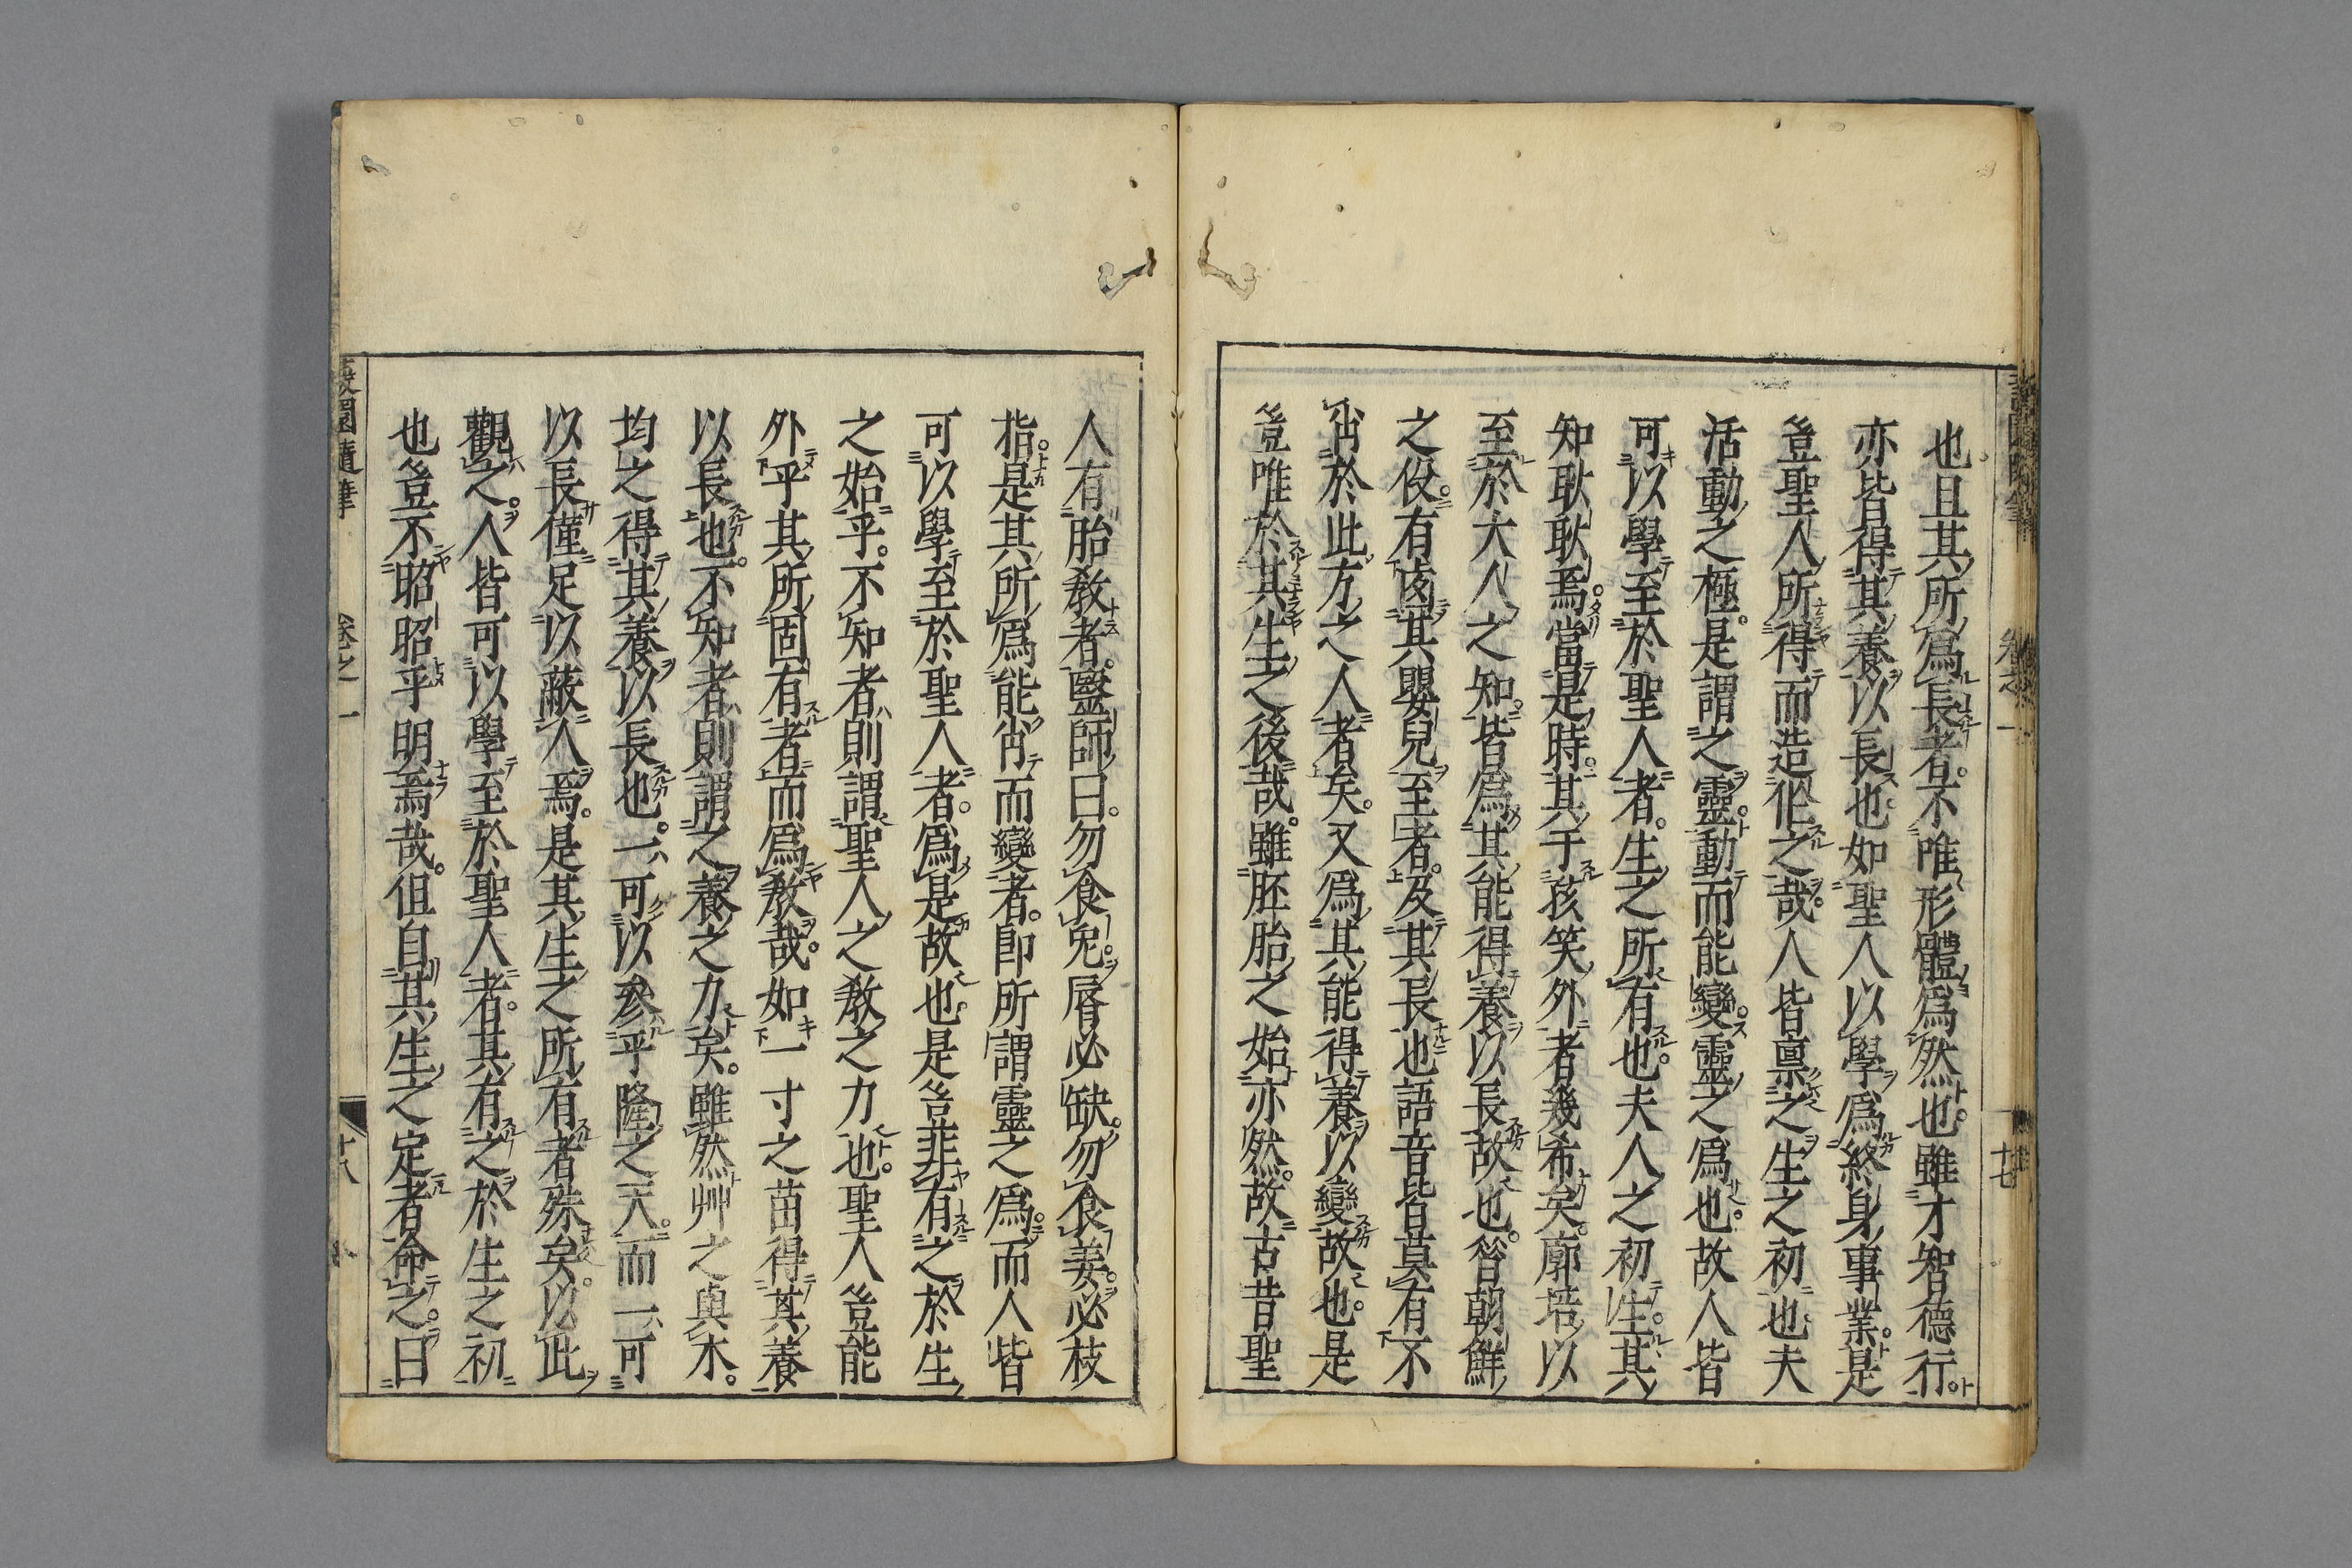 也且其所爲長者。不唯形體爲然也。雖才智德行。
亦皆得其養以長也。如聖人以學爲終身事業。是
豈聖人所得而造作之哉。人皆禀之生之初也。夫
活動之極。是謂之靈。動而能變。靈之爲也。故人皆
可以學至於聖人者。生之所有也。夫人之初生。其
知耿耿焉。當是時。其于孩笑外者幾希矣。廓培以
至於大人之知。皆爲其能得養以長故也。昝朝鮮
之役。有其嬰兒至者。及其長也語音皆莫有不
肖於此方之人者矣。又爲其能得養以變故也。是
豈唯於其生之後哉。雖胚胎之始亦然。故古昔聖
人有胎敎者。醫師曰。勿食兔。脣必缺。勿食姜。必枝
指。是其所爲能肖而變者。卽所謂靈之爲。而人皆
可以學至於聖人者。爲是故也。是豈非有之於生
之始乎。不知者則謂聖人之敎之力也。聖人豈能
外乎其所固有者而爲敎哉。如一寸之苗得其養
以長也。不知者則謂之養之力矣。雖然艸之與木。
均之得其養以長也。一可以參乎隆之天。而一可
以長僅足以蔽人焉。是其生之所有者殊矣。以此
觀之。人皆可以學至於聖人者。其有之於生之初
也豈不昭昭乎明焉哉。但自其生之定者命之。曰
蘐園隨筆　卷之一　十八
卷之一　十七